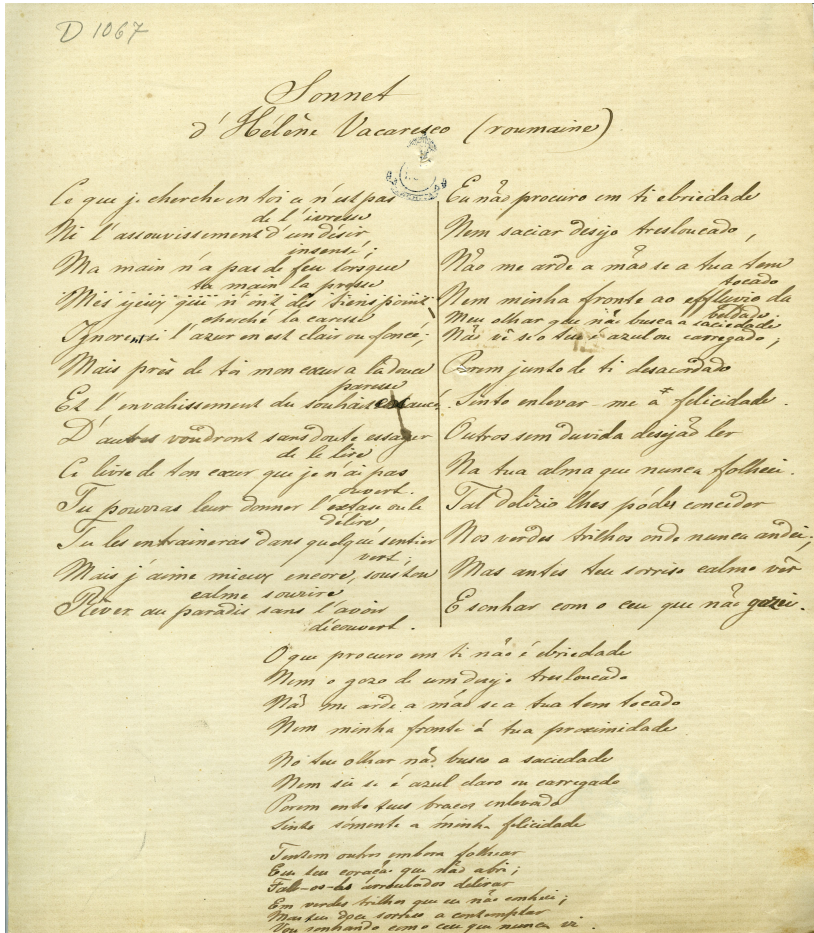 D 1067
Sonnet
d'Hélène Vacaresco (roumaine)
Ce que je cherche en toi ce n'est pas
de l'ivresse
Ni l'assouvissement d'un désir
insensé;
Ma main n'a pas de feu lorsque
ta main la presse
Mes yeux qui n'ont des tiens point
cherché la caresse
Ignorent si l'azur en est clair ou foncé;
Mais près de toi mon cœur a la douce
paresse
Et l'envahissement du souhait
D'autres voudront sans doute essayer
de le lire
Ce livre de ton cœur que je n'ai pas
ouvert.
Tu pourras leur donner l'extase ou le
délire
Tu les entraineras dans quelqu'sentier
vert;
Mais j'aime mieux encore, sous ton
calme sourire
Rêver au paradis sans l'avoir
découvert.
Eu não procuro em ti ebriedade
Nem saciar desejo tresloucado,
Não me arde a mão se a tua tem
tocado
Nem minha fronte ao effluvio da
beldade
Meu olhar que não busca a saciedade
Não vê se o teu é azul ou carregado;
Porem junto de ti desacordado
Sinto enlevar-me á felicidade.
Outros sem duvida desejão ler
Na tua alma que nunca folheei.
Tal delirio lhes pódes conceder
Nos verdes trilhos onde nunca andei;
Mas antes teu sorriso calmo vêr
E sonhar com o ceu que não gozei.
O que procuro em ti não é ebriedade
Nem o gozo de um desejo tresloucado
Não me arde a mão se a tua tem tocado
Nem minha fronte á tua proximidade
No teu olhar não busco a saciedade
Nem sei se é azul claro ou carregado
Porem entre teus braços enlevado
Sinto sómente a minha felicidade
Tentem outros embora folhear
Em teu coração que não abri;
arroubados delirar
Em verdes trilhos que eu não conheci;
Mas teu sorriso a contemplar
Vou sonhando como ceu que nunca vi.